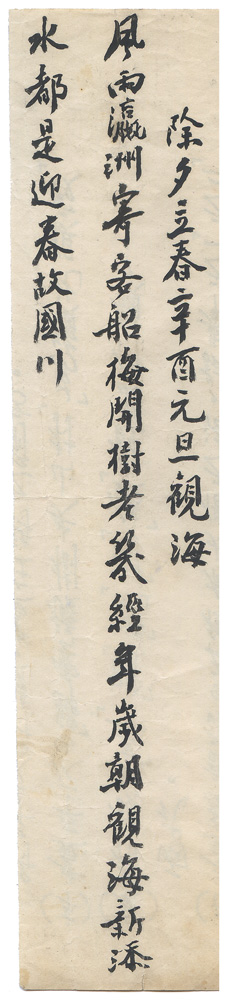 除夕立春辛酉元旦觀海
風雨瀛洲寄客船梅開樹老幾經年歲朝觀海新添
水都是迎春故國川